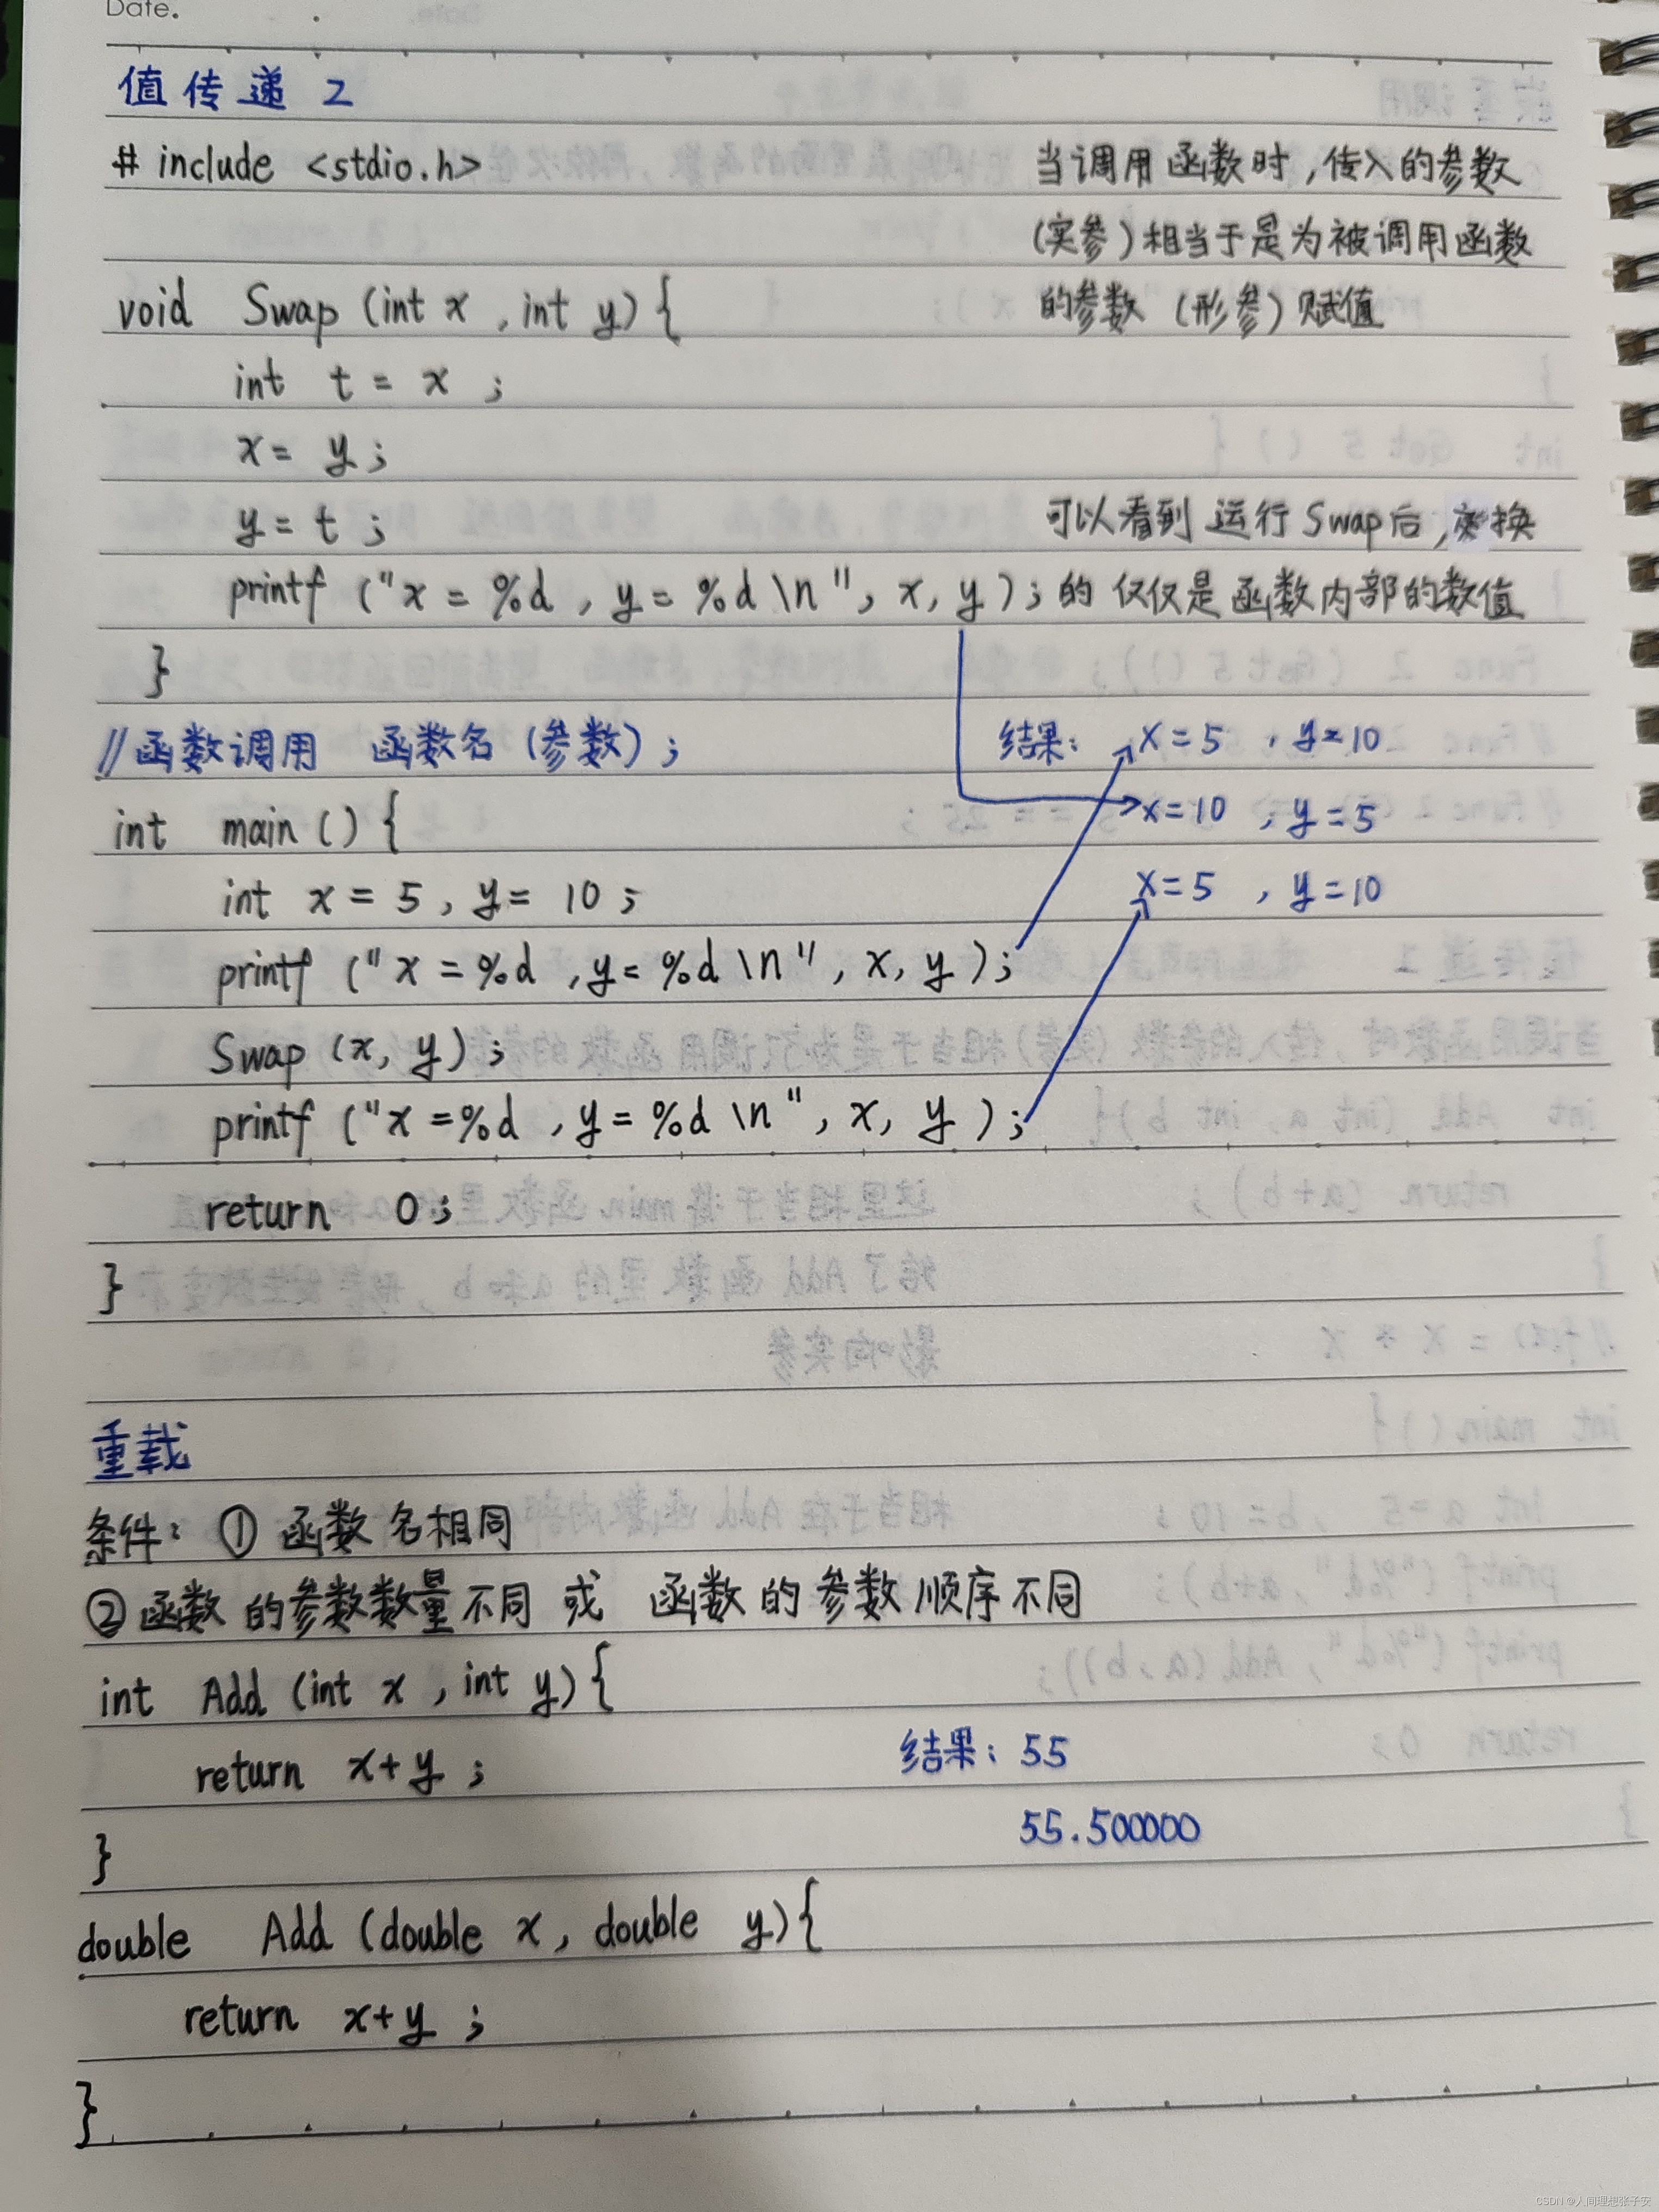 Date.
值传递 2
# include <stdio.h>
当调用函数时,传入的参数
(实参)相当于是为被调用函数
的参数 (形参) 赋值
void Swap (int x , int y) {
int t = x ;
x = y ;
y = t ;
可以看到 运行 Swap后,交换
printf ("x = %d , y = %d \n", x, y ) ;
的 仅仅是函数内部的数值
}
//函数调用 函数名 (参数) ;
结果: x = 5 , y = 10
int main () {
x=10 , y = 5
int x = 5 , y = 10 ;
x = 5 , y = 10
printf (" x = %d , y = %d \n" , x, y ) ;
Swap (x, y) ;
printf ("x = %d , y = %d \n" , x, y ) ;
return 0 ;
}
重载
条件: ① 函数名相同
② 函数的参数数量不同 或 函数的参数顺序不同
int Add (int x , int y) {
return x+y ;
结果: 55
55.500000
}
double Add (double x , double y) {
return x+y ;
}
CSDN @人间理想张子安